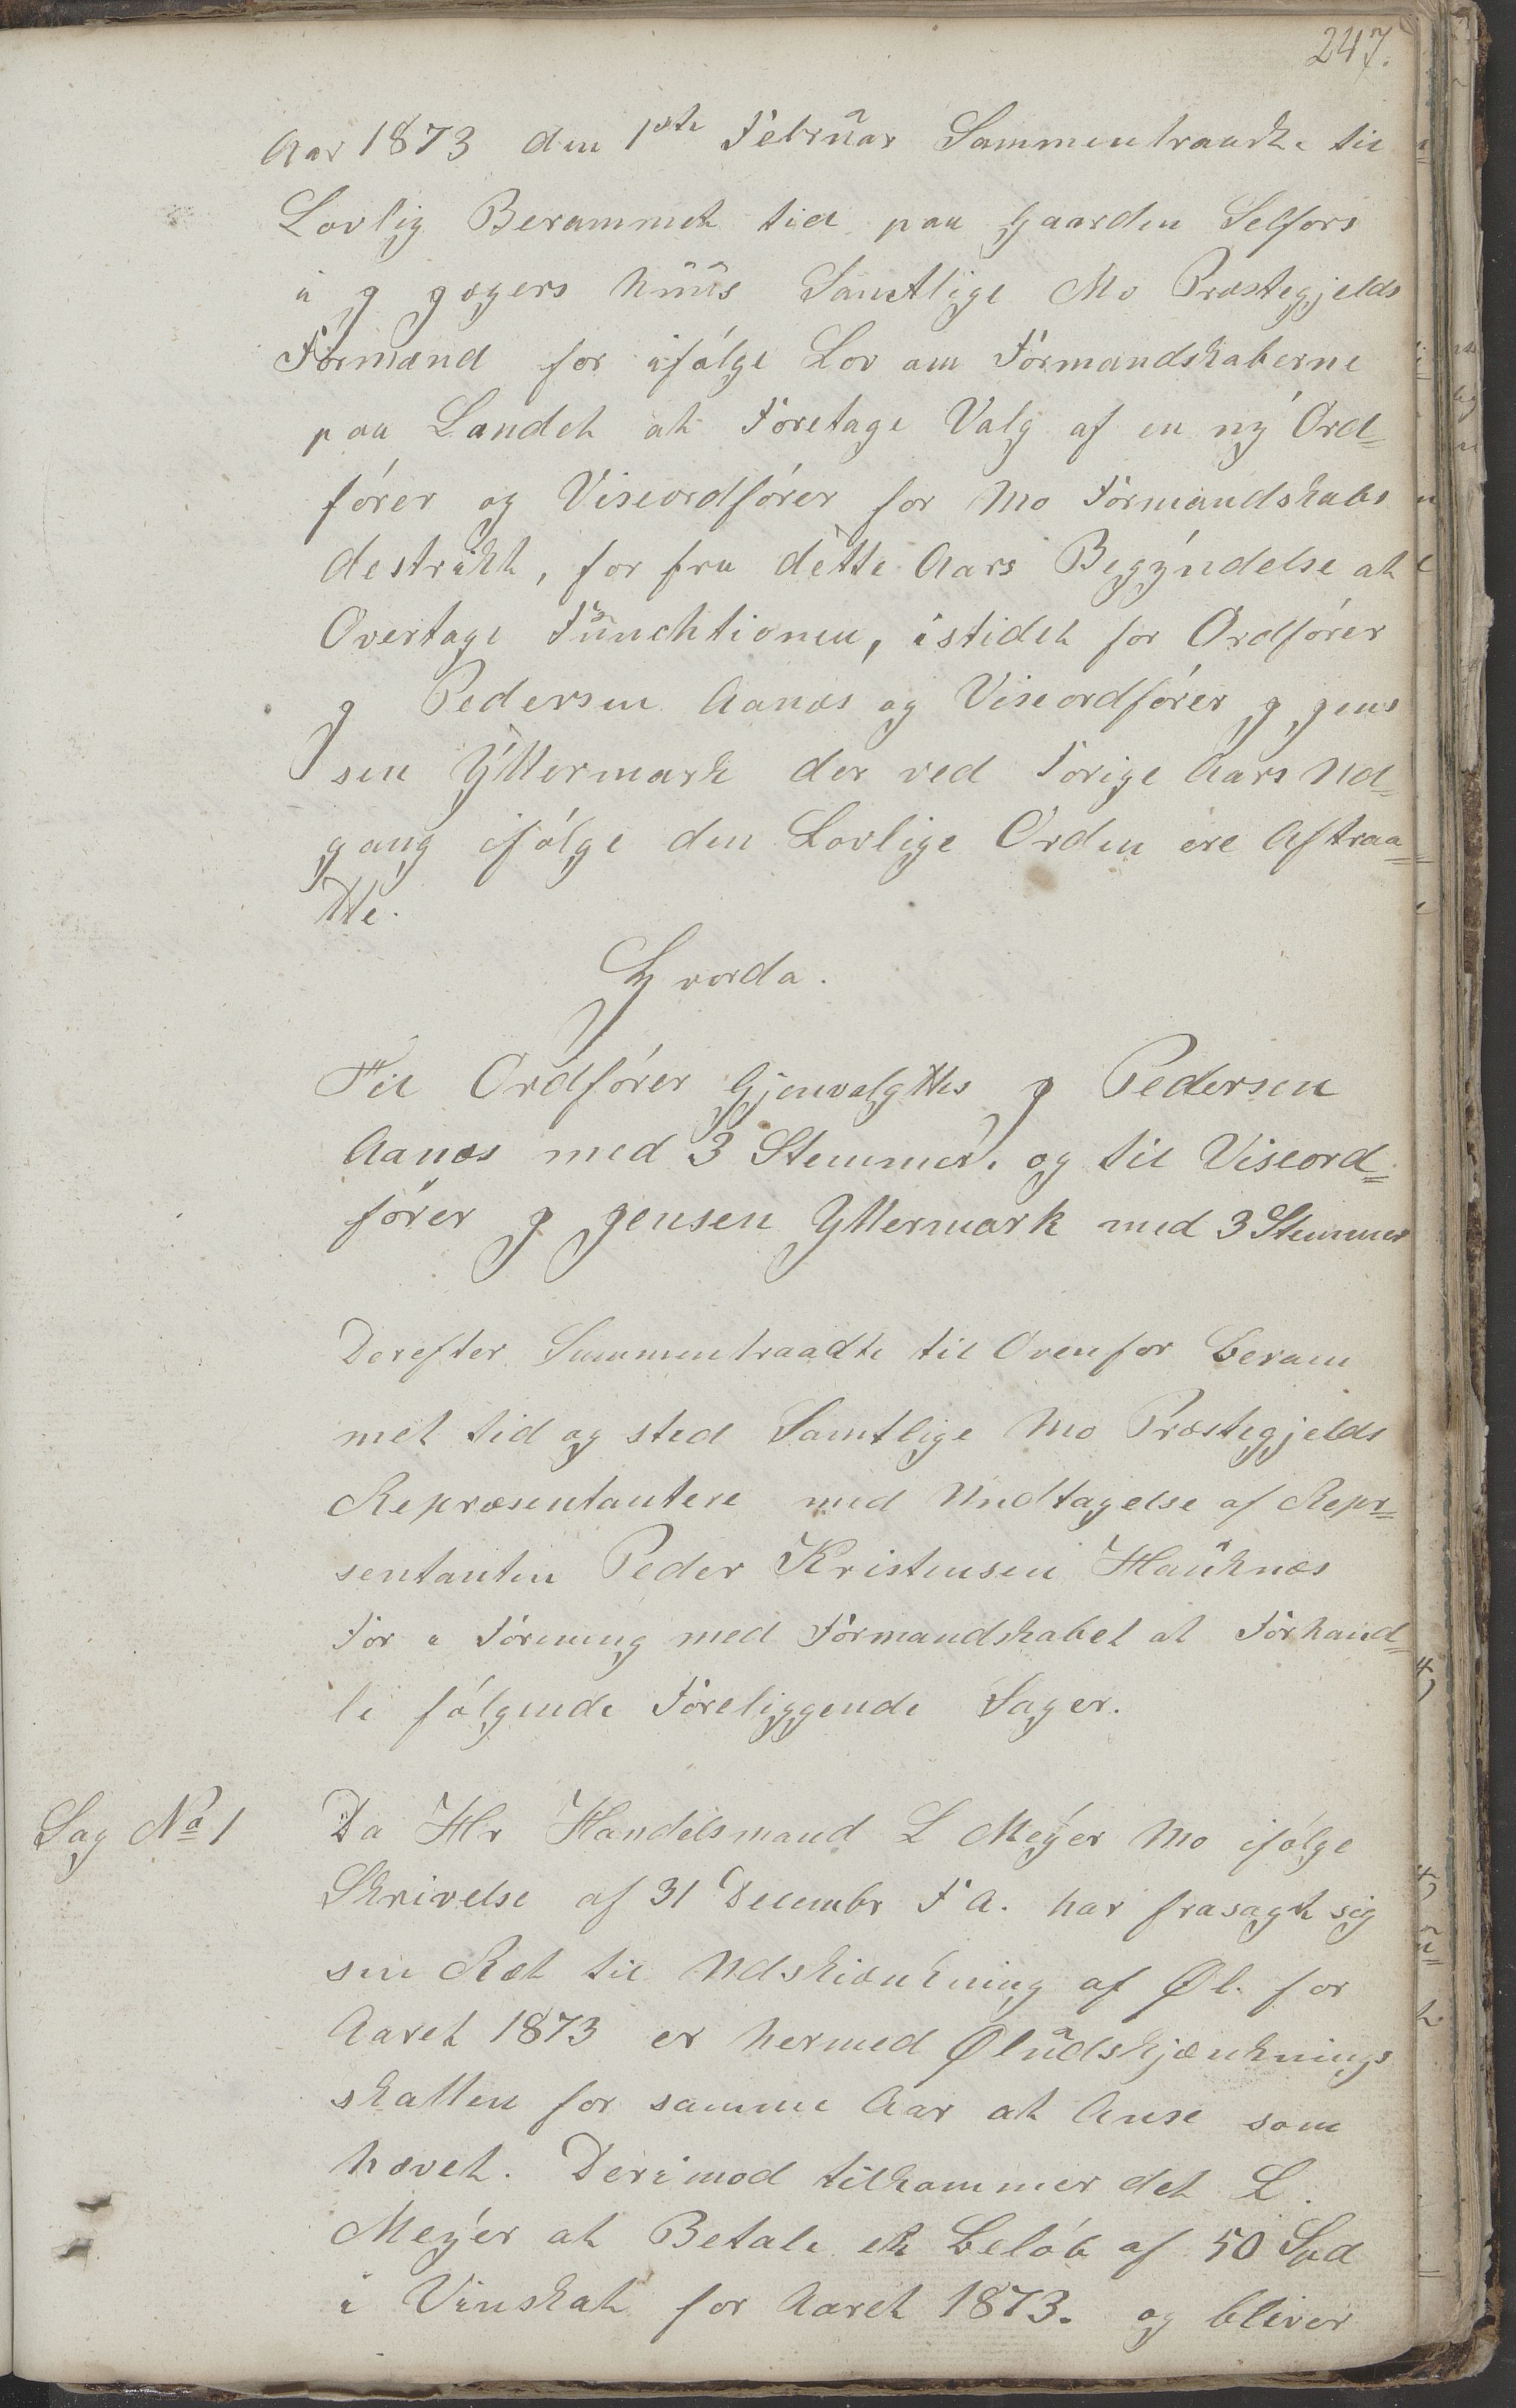 247.
Aar 1873 den 1ste Februar Sammentraadte til
Lovlig Berammet tid paa Gaarden Selfors
i J Jægers huus Samtlige Mo Præstegjelds
Formænd for ifølge Lov om Formandskaberne
paa Landet at Foretage Valg af en ny Ord=
fører og Viseordfører for Mo Formandskabs
destrikt, for fra dette Aars Begyndelse at
Overtage Funchtionen, istedet for Ordfører
J Pedersen Aanæs og Viseordfører J Jens
sen Yttermark der ved Forige Aars Ud=
gang ifølge den Lovlige Orden ere Aftraa=
tte.
Til Ordfører Gjenvalgttes J Pedersen
Aanæs med 3 Stemmer. og til Viseord=
fører J Jensen Yttermark med 3 Stemmer
Derefter Sammentraadte til Ovenfor beram
met tid og sted Samtlige Mo Præstegjelds
Repræsentantere med Undtagelse af Repr=
sentanten Peder Kristensen Hauknæs
For i Forening med Formandskabet at Forhand=
le følgende Foreliggende Sager.
Sag No 1
Da Hr Handelsmand L Meyer Mo ifølge
Skrivelse af 31 Decembr F A. har frasagt sig
sin Ret til Udskiænkning af Øl. for
Aaret 1873 er hermed Øludskjænknings
skatten for samme Aar at Anse som
hævet. Derimod tilkommer det L.
Meyer at Betale et Beløb af 50 Spd
i Vinskat for Aaret 1873. og bliver